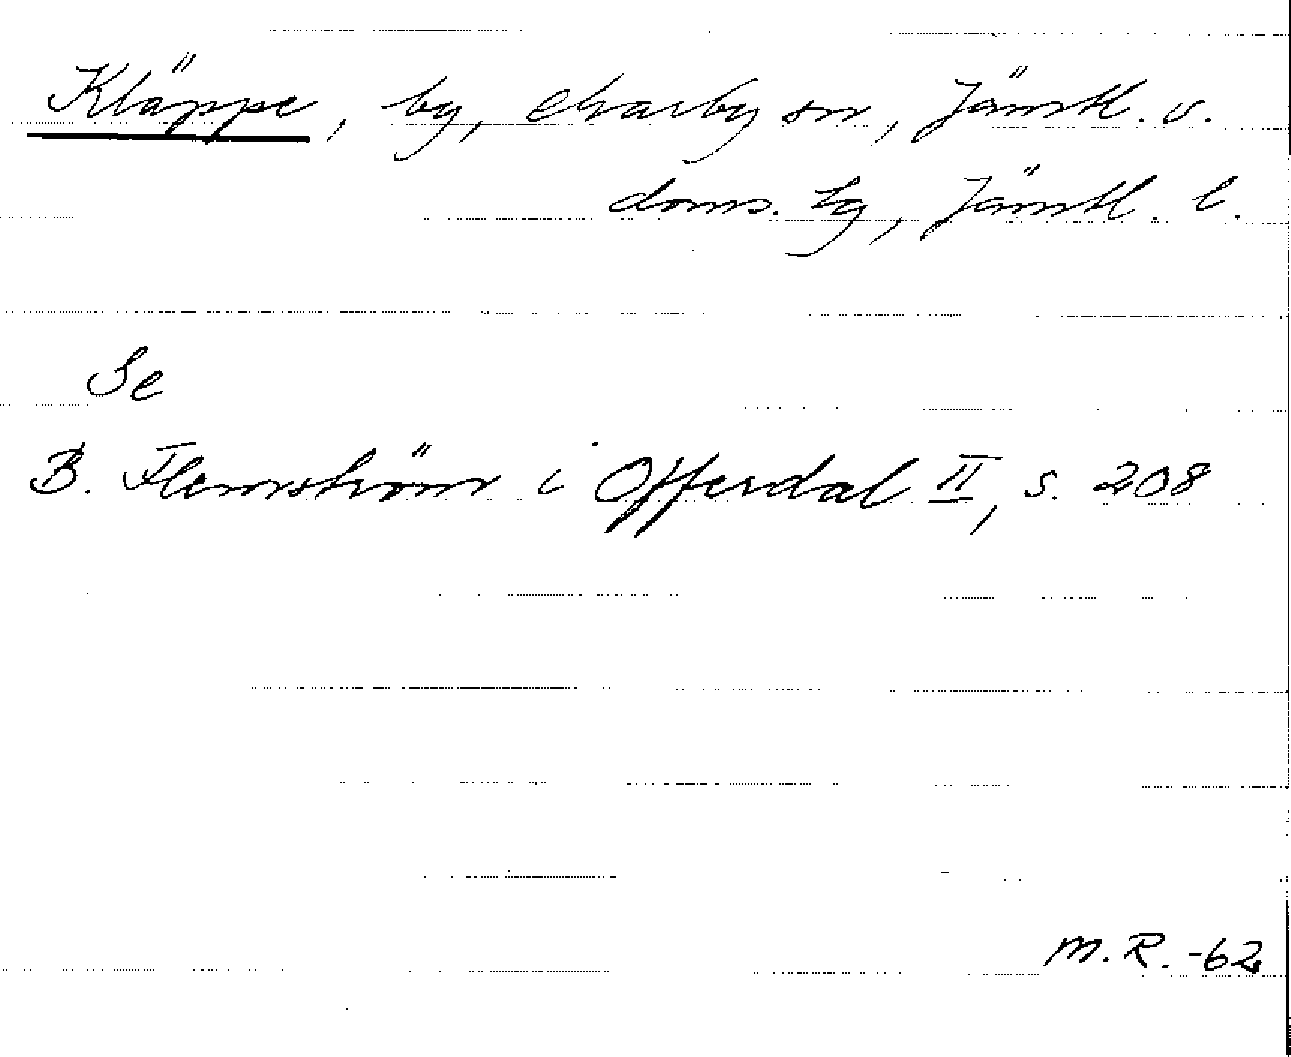 Kläppe, by, Marby sn, Jämtl. v.
doms. tg, Jämtl. l.
Se
B. Flemström i Offerdal II, s. 208
M.R. -62